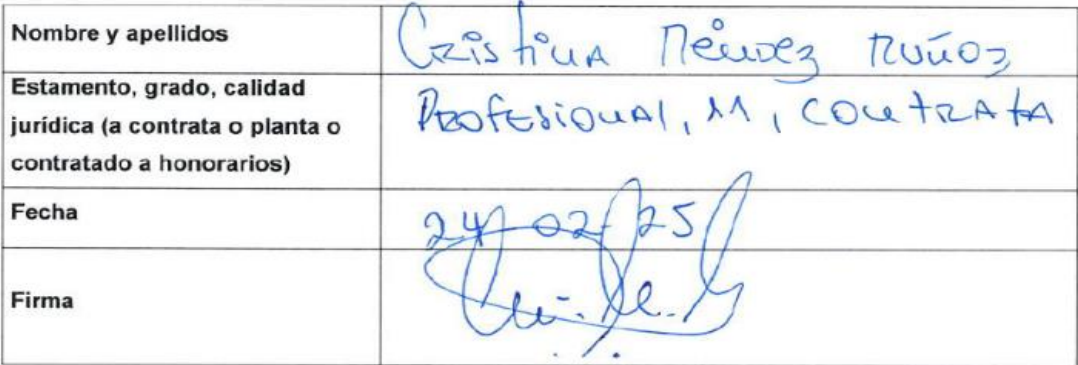 Nombre y apellidos
Cristina Méndez Muñoz
Estamento, grado, calidad
jurídica (a contrata o planta o
contratado a honorarios)
Profesional, 11, contrata
Fecha
24-02-25
Firma